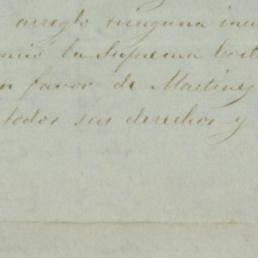 arreglo ninguna
la Suprema Corte
favor de Martinez
todos sus derechos y